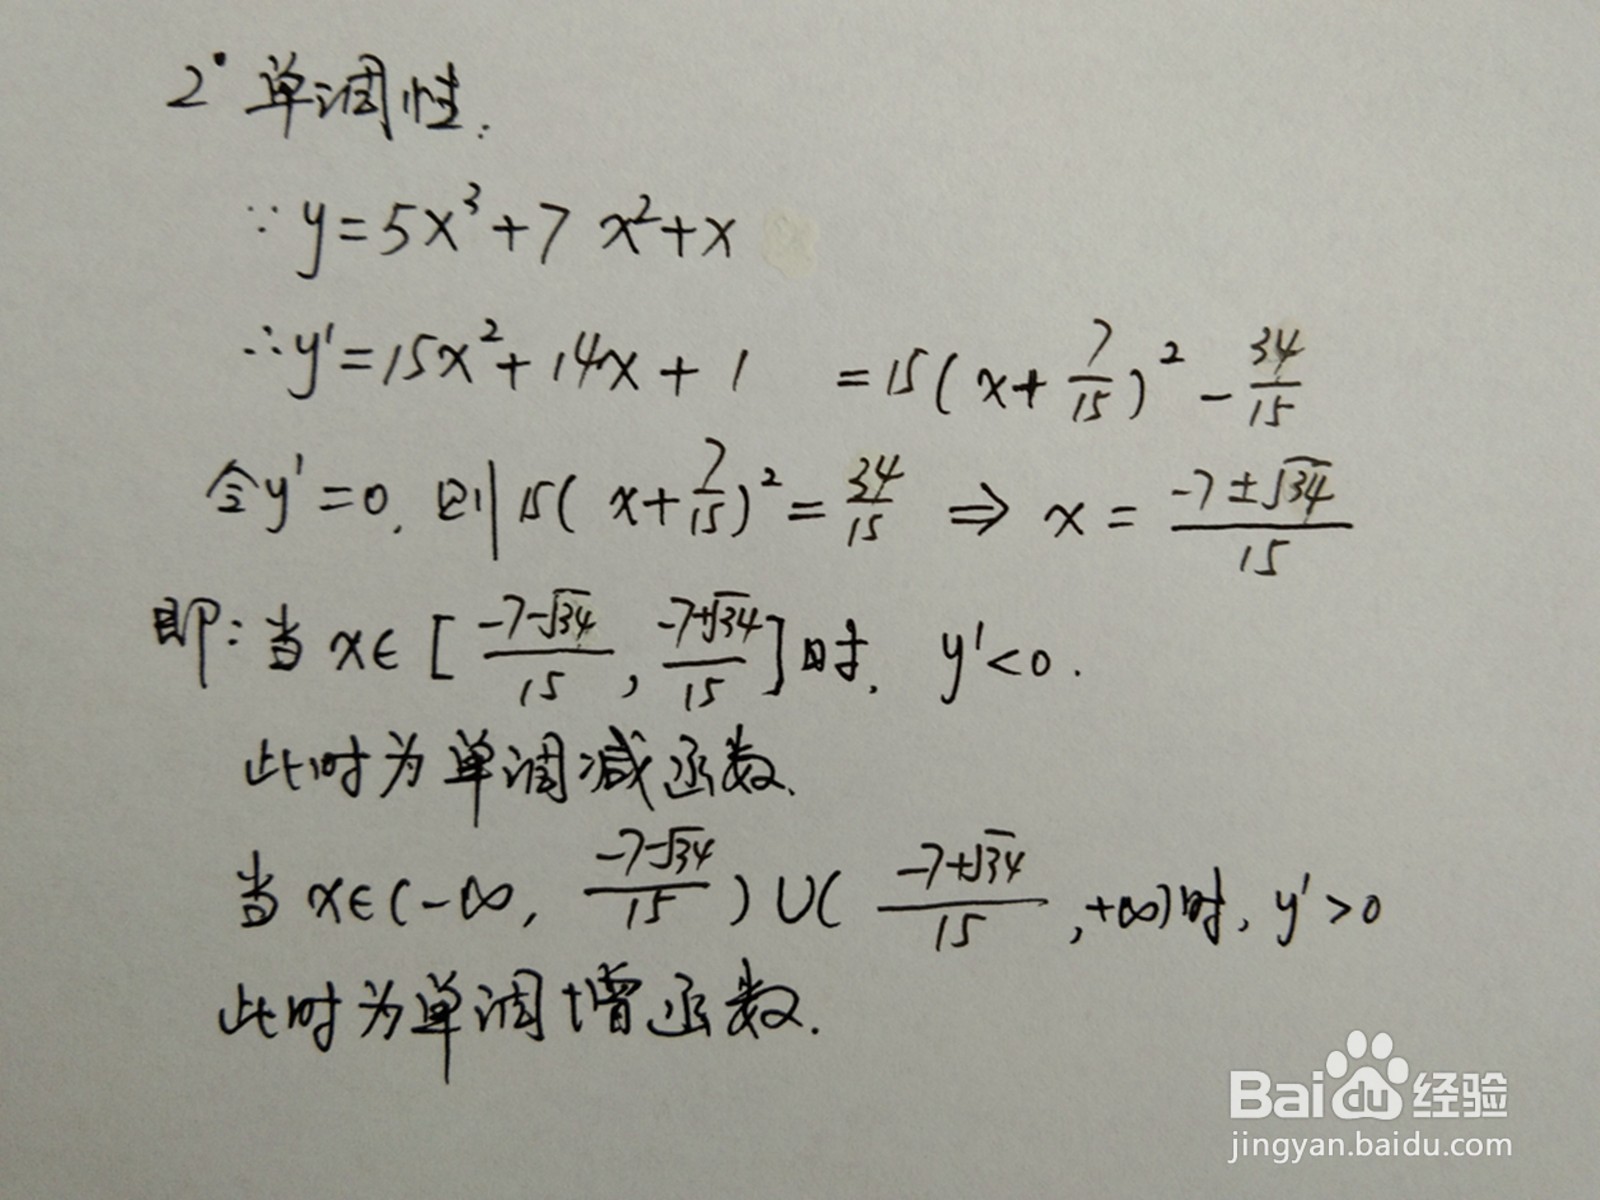 2° 单调性:
∵ y=5x³+7x²+x
∴ y'=15x²+14x+1 =15(x+7/15)²-34/15
令y'=0,则15(x+7/15)²=34/15 ⇒ x=(-7±√34)/15
即:当x∈[(-7-√34)/15,(-7+√34)/15]时,y'<0.
此时为单调减函数.
当x∈(-∞,(-7-√34)/15)∪((-7+√34)/15,+∞)时,y'>0
此时为单调增函数.
Bai du 经验
jingyan.baidu.com